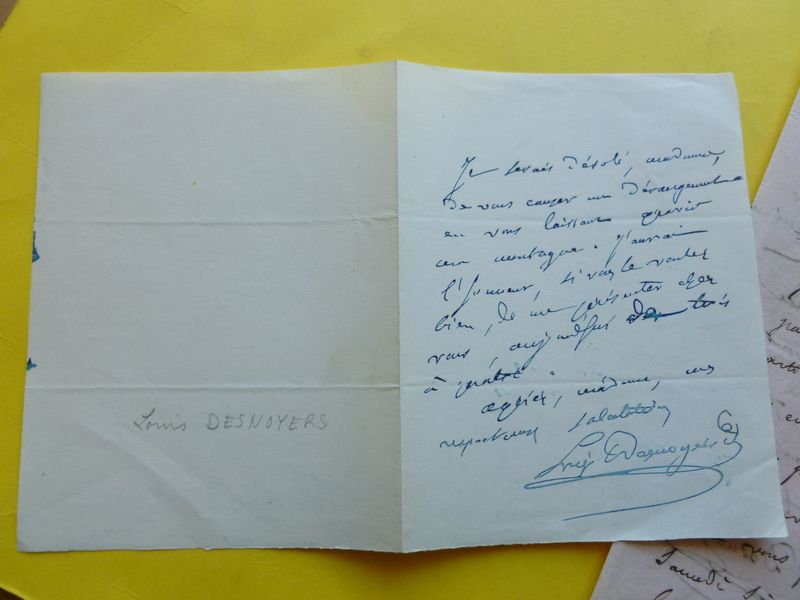 Louis DESNOYERS
Je serais désolé, madame,
de vous causer un dérangement
en vous laissant gravir
ma montagne. J'aurai
l'honneur, si vous le voulez
bien, de me présenter chez
vous, aujourd'hui de trois
à quatre.
agréez, madame, mes
respectueuses salutations
Louis Desnoyers
Samedi